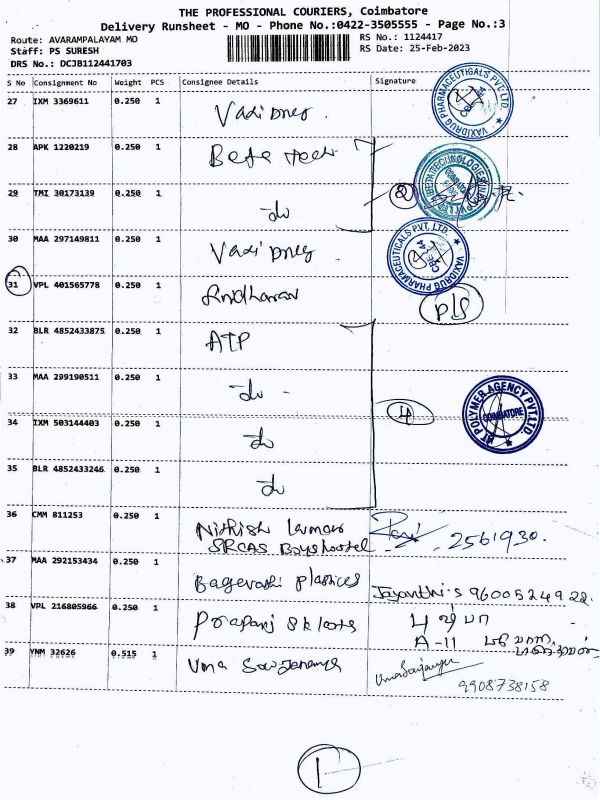 THE PROFESSIONAL COURIERS, Coimbatore
Delivery Runsheet - MO - Phone No.:0422-3505555 - Page No.:3
Route: AVARAMPALAYAM MO
RS No.: 1124417
Staff: PS SURESH
RS Date: 25-Feb-2023
DRS No.: DCJB112441703
S No Consignment No Weight PCS Consignee Details Signature
27 IXM 3369611 0.250 1 VAXIDRUG PHARMACEUTICALS PVT.LTD. CBE-44
28 APK 1220219 0.250 1 Beta Tech COIMBATORE
29 TMI 30173139 0.250 1 do 2
30 MAA 297149811 0.250 1 VAXIDRUG PHARMACEUTICALS PVT. LTD. CBE-44
31 VPL 401565778 0.250 1 P/S
32 BLR 4852433875 0.250 1 ATP
33 MAA 299190511 0.250 1 do - 4 POLYMER AGENCY PVT.LTD. COIMBATORE
34 IXM 503144403 0.250 1 do
35 BLR 4852433246 0.250 1 do
36 CMM 811253 0.250 1 Nithish kumar 2561930.
SRCAS Boys hostel
37 MAA 292153434 0.250 1 plastics Jayanthi.S 9600524922.
38 VPL 216805966 0.250 1 A-11
39 YNM 32626 0.515 1 Uma Sowjanya
9908738158
1